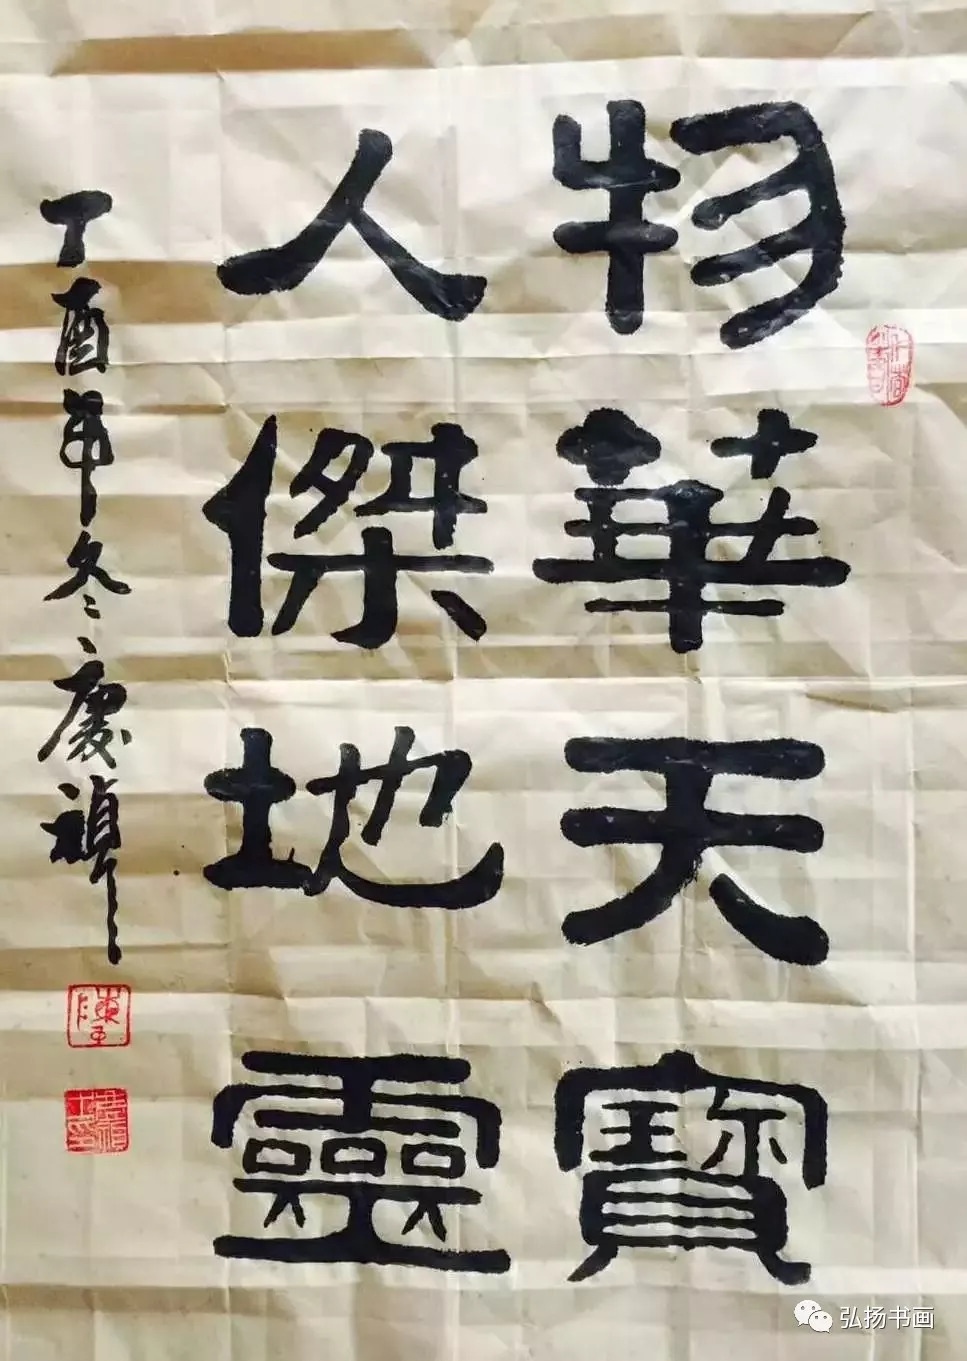 物華天寶
人傑地靈
丁酉年冬慶禎
弘扬书画